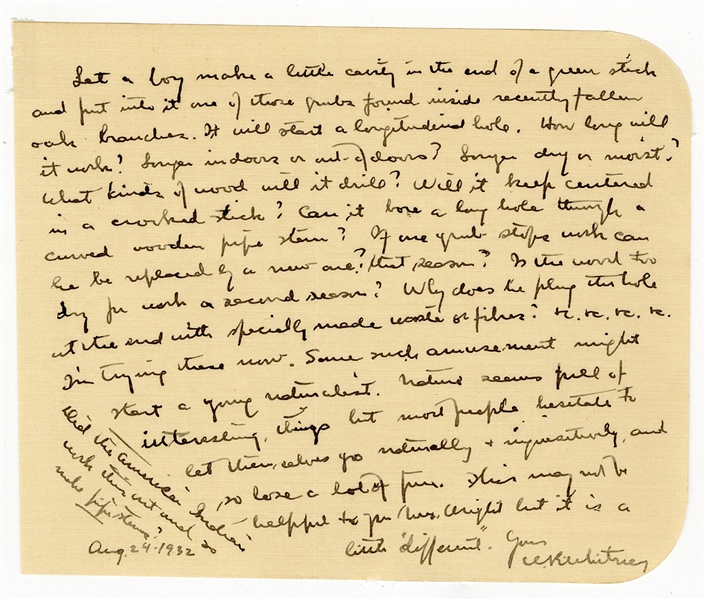 Let a boy make a little cavity in the end of a green stick
and put into it one of those grubs found inside recently fallen
oak branches. It will start a longitudinal hole. How long will
it work? Longer indoors or out-of-doors? Longer dry or moist?
What kinds of wood will it drill? Will it keep centered
in a crooked stick? Can it bore a long hole through a
curved wooden pipe stem? If one grub stops work can
he be replaced by a new one? that season? Is the wood too
dry for work a second season? Why does he plug the hole
at the end with specially made waste or fibres? &c. &c. &c. &c.
I'm trying these now. Some such amusement might
start a young naturalist. Nature seems full of
interesting things but most people hesitate to
let themselves go naturally & inquisitively, and
so lose a lot of fun. This may not be
helpful to you Mrs. Wright but it is a
little "different". Yours
W.R. Whitney
Did the American Indian
work this out and so
make pipestems?
Aug. 24-1932